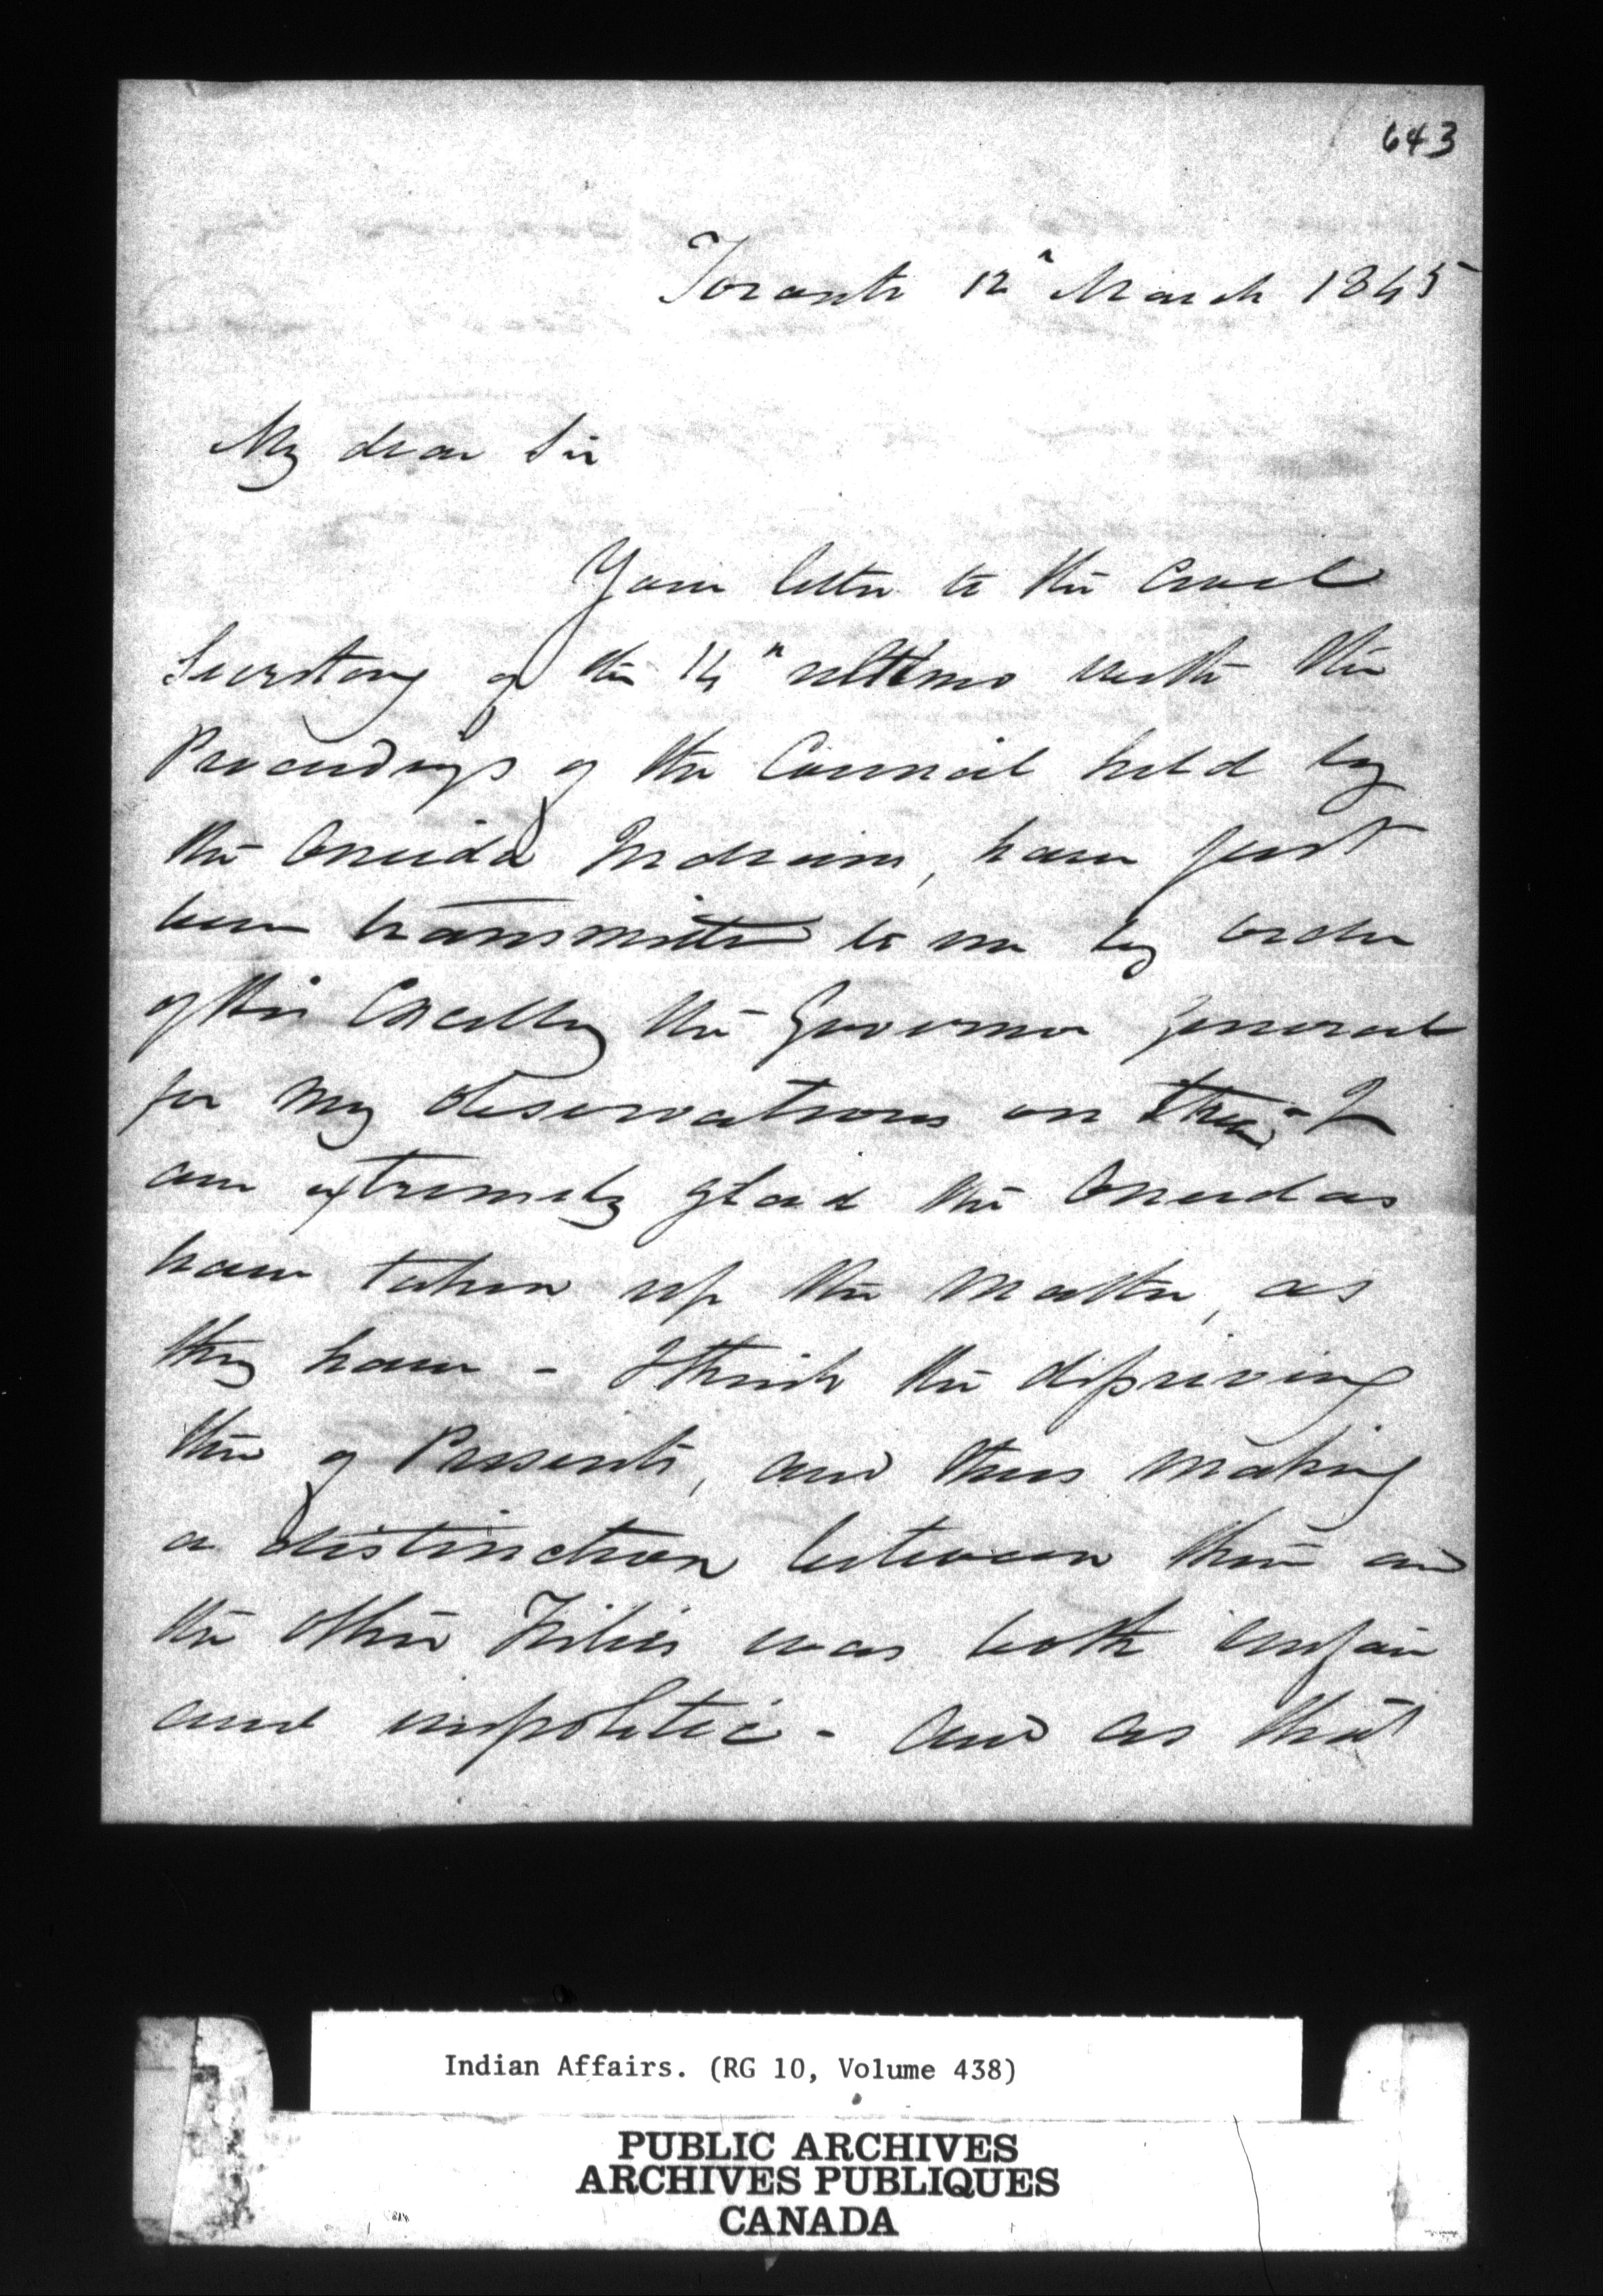 643
Toronto 12" March 1845
My dear Sir
Your letter to the Civil
Secretary of the 14" ultimo with the
Proceedings of the Council held by
the Oneida Indians, have just
been transmitted to me by order
of His Excelly the Governor General
for my observations on them - I
am extremely glad the Oneidas
have taken up the matter, as
they have - I think the depriving
them of Presents, and thus making
a distinction between them and
the other Tribes was both unfair
and impolitic - And as that
Indian Affairs. (RG 10, Volume 438)
PUBLIC ARCHIVES
ARCHIVES PUBLIQUES
CANADA